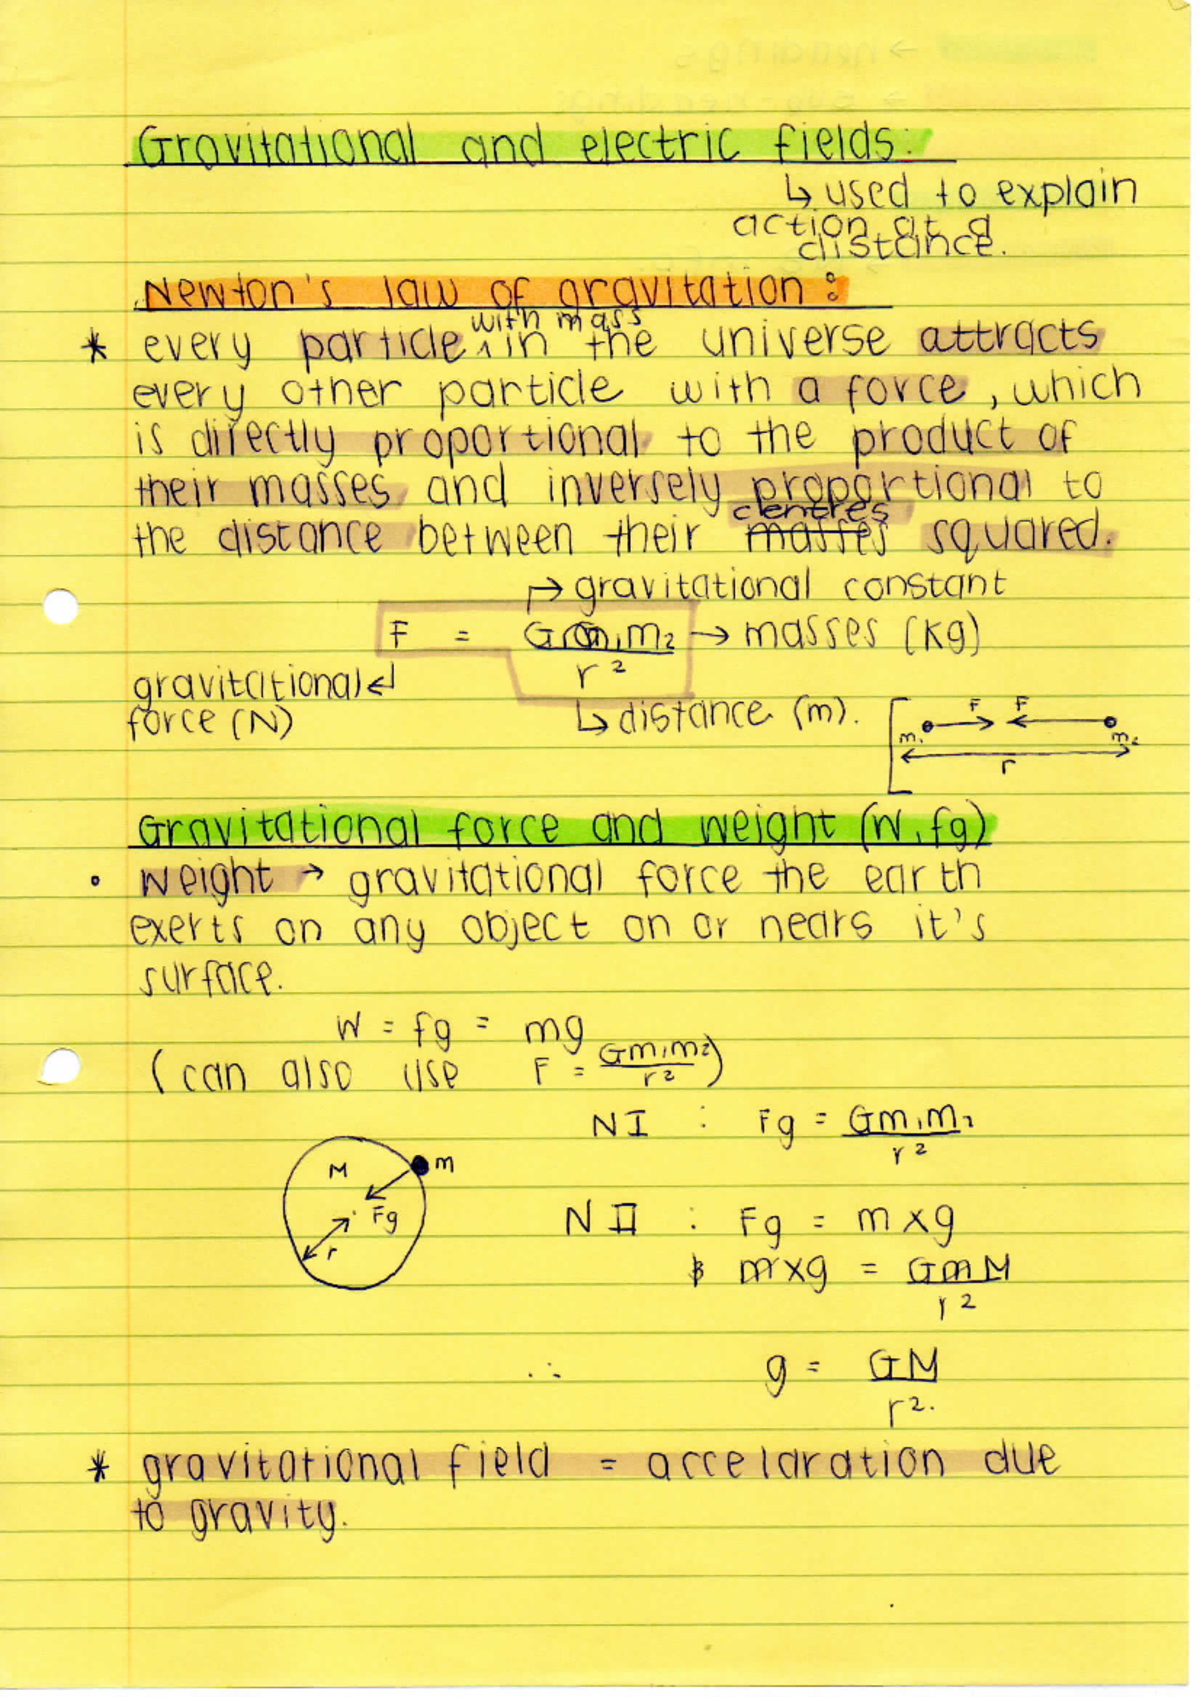 Gravitational and electric fields:
↳ used to explain
action at a
distance.
Newton's law of gravitation:
with mass
* every particle ^ in the universe attracts
every other particle with a force, which
is directly proportional to the product of
their masses and inversely proportional to
centres
the distance between their masses squared.
↱ gravitational constant
F = Gm1m2 → masses (kg)
r²
gravitational ↲
force (N)
↳ distance (m).
F F
m1 m2
r
Gravitational force and weight (W, fg)
• Weight → gravitational force the earth
exerts on any object on or nears it's
surface.
W = fg = mg
(can also use F = Gm1m2)
r²
NI : Fg = Gm1m2
r²
M m
Fg
r
NII : Fg = m x g
m x g = GmM
r²
∴ g = GM
r².
* gravitational field = accelaration due
to gravity.